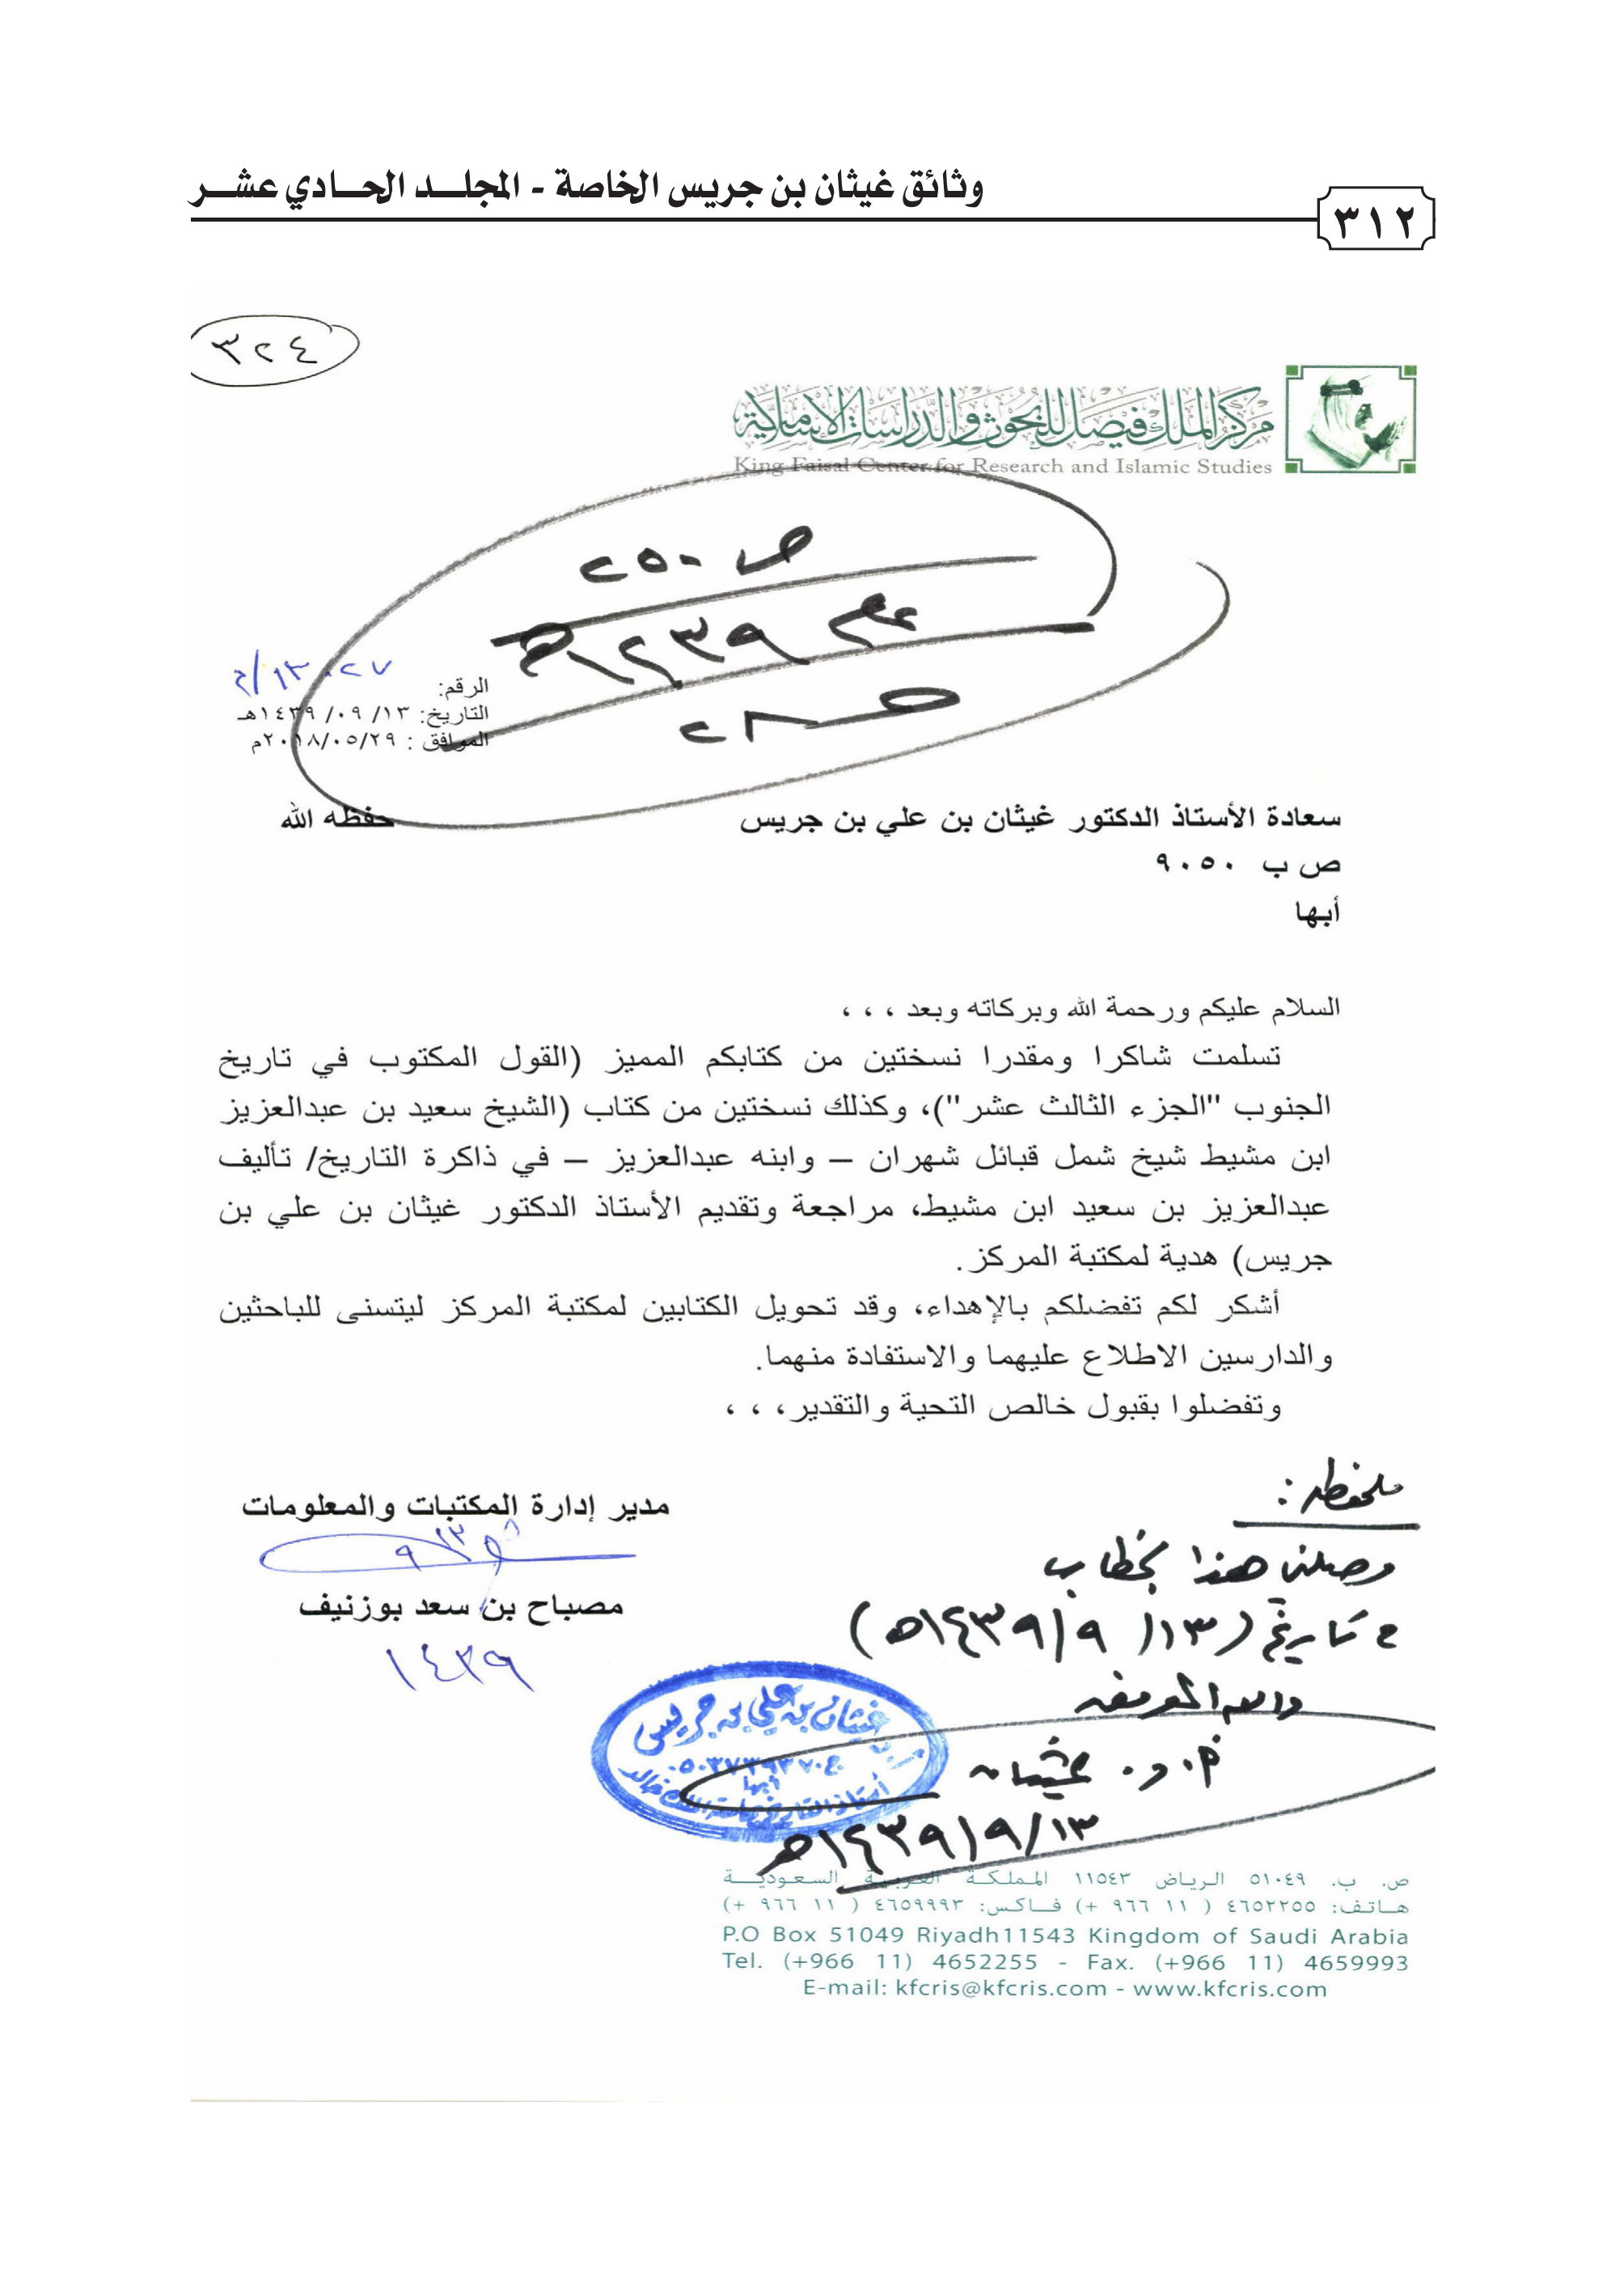 وثائق غيثان بن جريس الخاصة - المجلد الحادي عشر
٣١٢
٣٢٤
مركز الملك فيصل للبحوث والدراسات الإسلامية
King Faisal Center for Research and Islamic Studies
ص ٢٥٠
١٤٣٩
الرقم: ١٣٠٢٧/م
التاريخ: ١٣/ ٠٩/ ١٤٣٩هـ
الموافق : ٢٠١٨/٠٥/٢٩م
سعادة الأستاذ الدكتور غيثان بن علي بن جريس حفظه الله
ص ب ٩٠٥٠
أبها
السلام عليكم ورحمة الله وبركاته وبعد ، ، ،
تسلمت شاكرا ومقدرا نسختين من كتابكم المميز (القول المكتوب في تاريخ
الجنوب "الجزء الثالث عشر")، وكذلك نسختين من كتاب (الشيخ سعيد بن عبدالعزيز
ابن مشيط شيخ شمل قبائل شهران – وابنه عبدالعزيز – في ذاكرة التاريخ/ تأليف
عبدالعزيز بن سعيد ابن مشيط، مراجعة وتقديم الأستاذ الدكتور غيثان بن علي بن
جريس) هدية لمكتبة المركز.
أشكر لكم تفضلكم بالإهداء، وقد تحويل الكتابين لمكتبة المركز ليتسنى للباحثين
والدارسين الاطلاع عليهما والاستفادة منهما.
وتفضلوا بقبول خالص التحية والتقدير، ، ،
مدير إدارة المكتبات والمعلومات
مصباح بن سعد بوزنيف
١٤٣٩
ملحوظة :
وصلنا هذا الخطاب
في تاريخ (١٣/ ٩/ ١٤٣٩هـ)
والله الموفق
أ. د. غيثان
١٣/ ٩/ ١٤٣٩هـ
غيثان بن علي بن جريس
أبها
أستاذ التاريخ بجامعة الملك خالد
ص. ب. ٥١٠٤٩ الرياض ١١٥٤٣ المملكة العربية السعودية
هاتف: ٤٦٥٢٢٥٥ ( ١١ ٩٦٦ +) فاكس: ٤٦٥٩٩٩٣ ( ١١ ٩٦٦ +)
P.O Box 51049 Riyadh11543 Kingdom of Saudi Arabia
Tel. (+966 11) 4652255 - Fax. (+966 11) 4659993
E-mail: kfcris@kfcris.com - www.kfcris.com